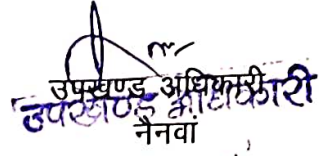 उपखण्ड अधिकारी
उपखण्ड अधिकारी
नैनवां